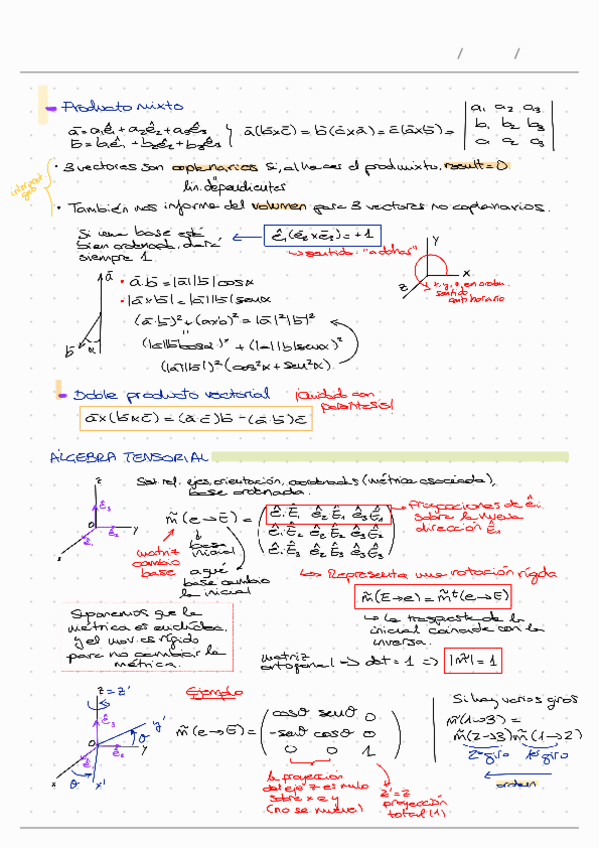 / /
Producto mixto
ā = a₁ê₁ + a₂ê₂ + a₃ê₃
b̄ = b₁ê₁ + b₂ê₂ + b₃ê₃
ā(b̄×c̄) = b̄(c̄×ā) = c̄(ā×b̄) =
a₁ a₂ a₃
b₁ b₂ b₃
c₁ c₂ c₃
• 3 vectores son coplanarios si, al hacer el prod mixto, result = 0
lin. dependientes
• También nos informa del volumen para 3 vectores no coplanarios.
Si una base está
bien ordenada, dará
siempre 1.
ê₁(ê₂×ê₃) = +1
sentido "
y
x
z
x, y, z, en
sentido
antihorario
ā
b̄
α
• ā·b̄ = |ā||b̄|cosα
• |ā×b̄| = |ā||b̄|senα
(ā·b̄)² + (a×b)² = |ā|²|b̄|²
(|a||b|cosα)² + (|a||b|senα)²
(|ā||b̄|)²(cos²α + sen²α)
Doble producto vectorial
¡Cuidado con
paréntesis!
ā×(b̄×c̄) = (ā·c̄)b̄ - (ā·b̄)c̄
ÁLGEBRA TENSORIAL
Sist. ref. ejes, orientación, coordenadas (métrica asociada),
base ordenada.
z
ê₃
O
ê₂
y
ê₁
x
m̃(e→E) =
ê₁Ê₁ ê₂Ê₁ ê₃Ê₁
ê₁Ê₂ ê₂Ê₂ ê₃Ê₂
ê₁Ê₃ ê₂Ê₃ ê₃Ê₃
Proyecciones de êᵢ
sobre la nueva
dirección Ê₁
matriz
cambio
base
base
inicial
a qué
base cambio
la inicial
Representa una rotación rígida
m̃(E→e) = m̃ᵗ(e→E)
La traspuesta de la
inicial coincide con la
inversa.
Suponemos que la
métrica es euclídea
y el mov. es rígido
para no cambiar la
métrica.
matriz
ortogonal → det = 1 ⇒ |m̃| = 1
Ejemplo
z = z'
ê₃
y'
θ
O
ê₂
y
ê₁
x
θ
x'
m̃(e→E) =
cosθ senθ 0
-senθ cosθ 0
0 0 1
la proyección
del eje z es nula
sobre x e y
(no se mueve)
z' = z
proyección
total (1)
Si hay varios giros
m̃(1→3) =
m̃(2→3) m̃(1→2)
2º giro 1er giro
orden